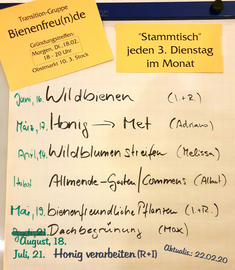 Transition-Gruppe
Bienenfreu(n)de
Gründungstreffen:
Morgen, Di. 18.02.
18 - 20 Uhr
Obstmarkt 10, 3. Stock
"Stammtisch"
jeden 3. Dienstag
im Monat
Juni, 16. Wildbienen (I.+R.)
März, 17. Honig → Met (Adriano)
April, 14. Wildblumenstreifen (Melissa)
Allmende-Garten/Commons (Albert)
Mai, 19. bienenfreundliche Pflanzen (I.+R.)
Dachbegrünung (Max)
August, 18.
Juli, 21. Honig verarbeiten (R+I)
Aktualis.: 22.02.20